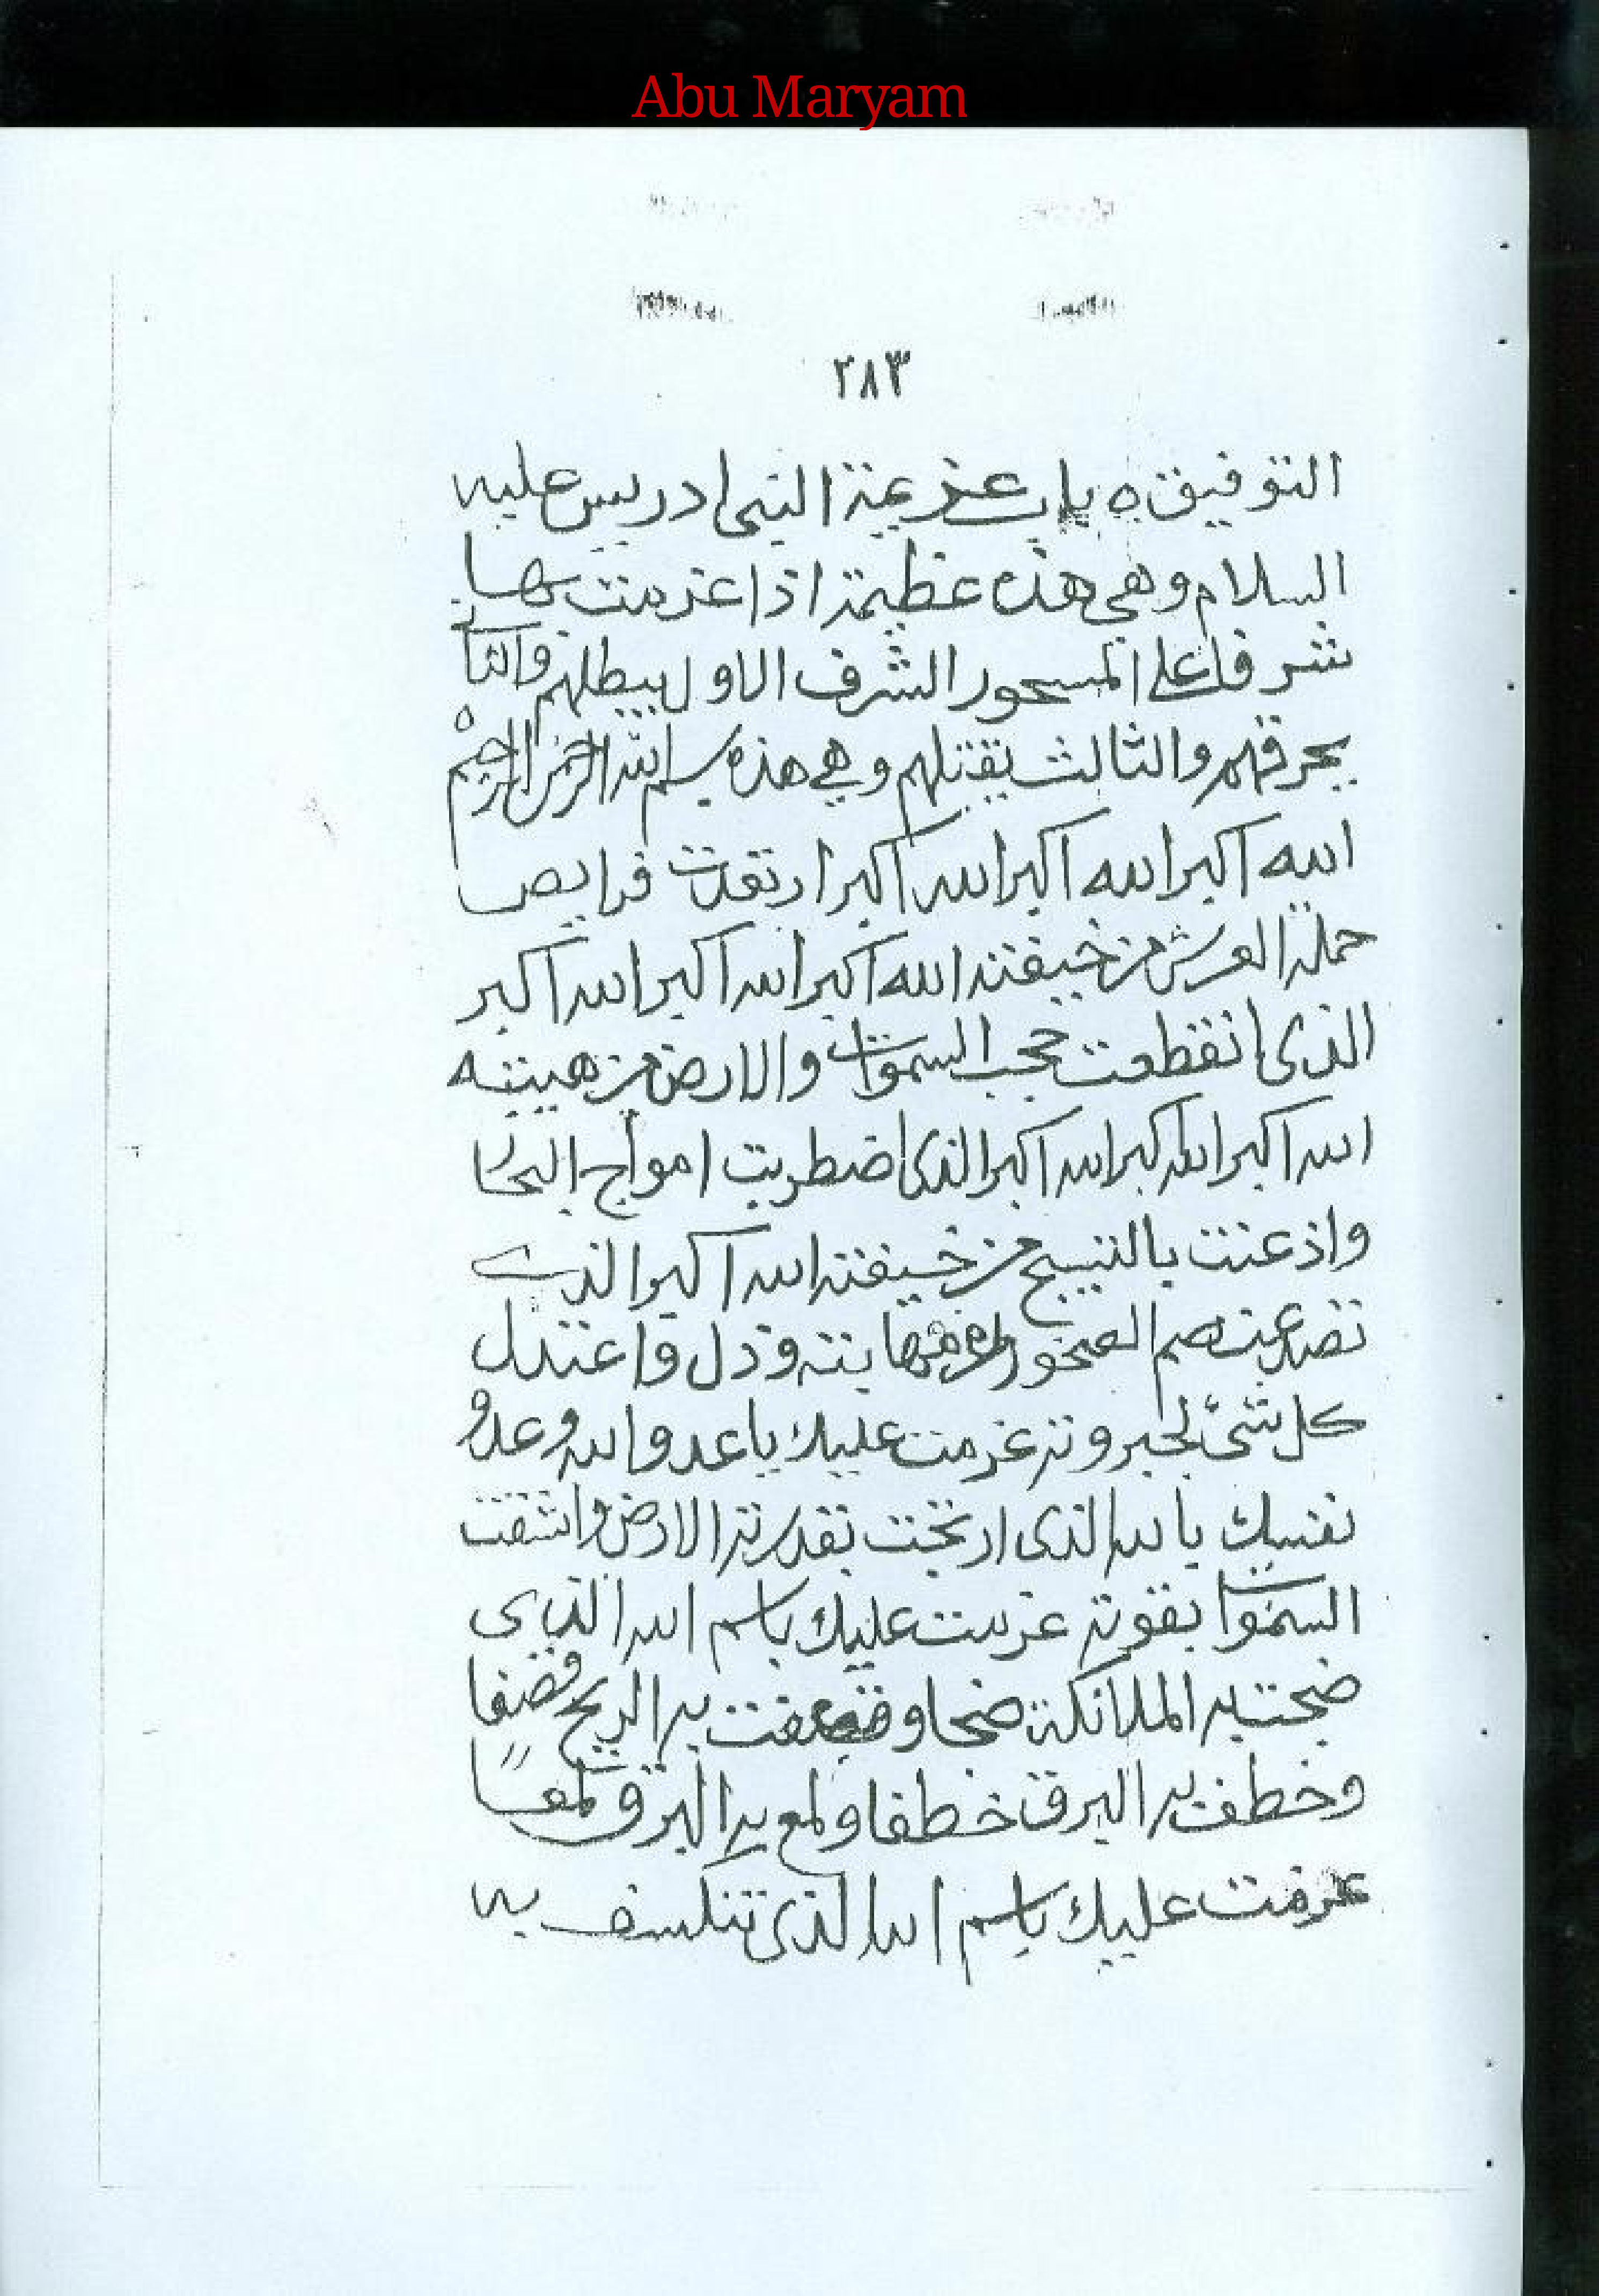 Abu Maryam
٢٨٣
التوفيق ه باب عزيمة النبي ادريس عليه
السلام وهي هذه عظيمة اذا عزمت بها
شرفا على المسحور الشرف الاول يبطلهم والثا
يحرقهم والثالث يقتلهم وهي هذه بسم الله الرحمن الرحيم
الله اكبر الله اكبر الله اكبر ارتعدت فرايص
حملة العرش من خيفته الله اكبر الله اكبر الله اكبر
الذي انقطعت حجب السموات والارض من هيبته
الله اكبر الله اكبر الله اكبر الذي اضطربت امواج البحار
واذعنت بالتسبيح من خيفته الله اكبر الذي
تصدعت صم الصخور من مهابته وذل واعتدل
كل شئ لجبروته عزمت عليك يا عدو الله وعدو
نفسك بالله الذي ارتجت بقدرته الارض وانشقت
السموات بقوته عزمت عليك باسم الله الذي
ضجت به الملائكة ضجا وقصفت به الريح قصفا
وخطف به البرق خطفا ولمع به البرق لمعا
عزمت عليك باسم الله الذي تنكسف به